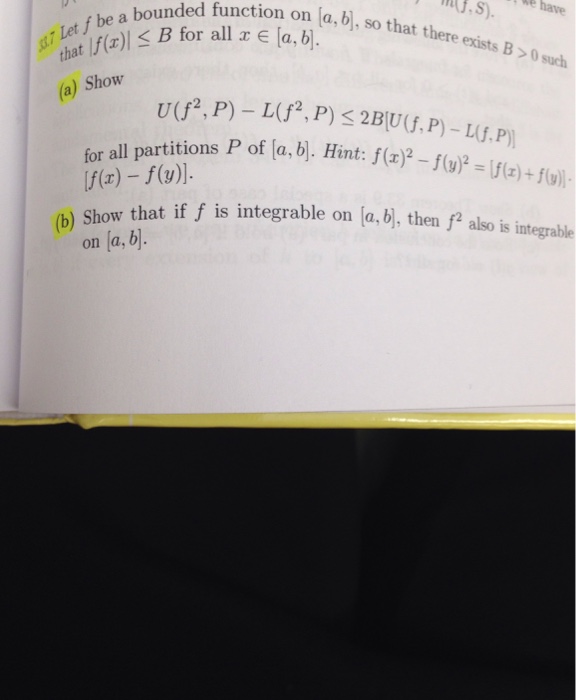 m(f, S). we have
33.7 Let f be a bounded function on [a, b], so that there exists B > 0 such
that |f(x)| ≤ B for all x ∈ [a, b].
(a) Show
U(f², P) − L(f², P) ≤ 2B[U(f, P) − L(f, P)]
for all partitions P of [a, b]. Hint: f(x)² − f(y)² = [f(x) + f(y)] ·
[f(x) − f(y)].
(b) Show that if f is integrable on [a, b], then f² also is integrable
on [a, b].